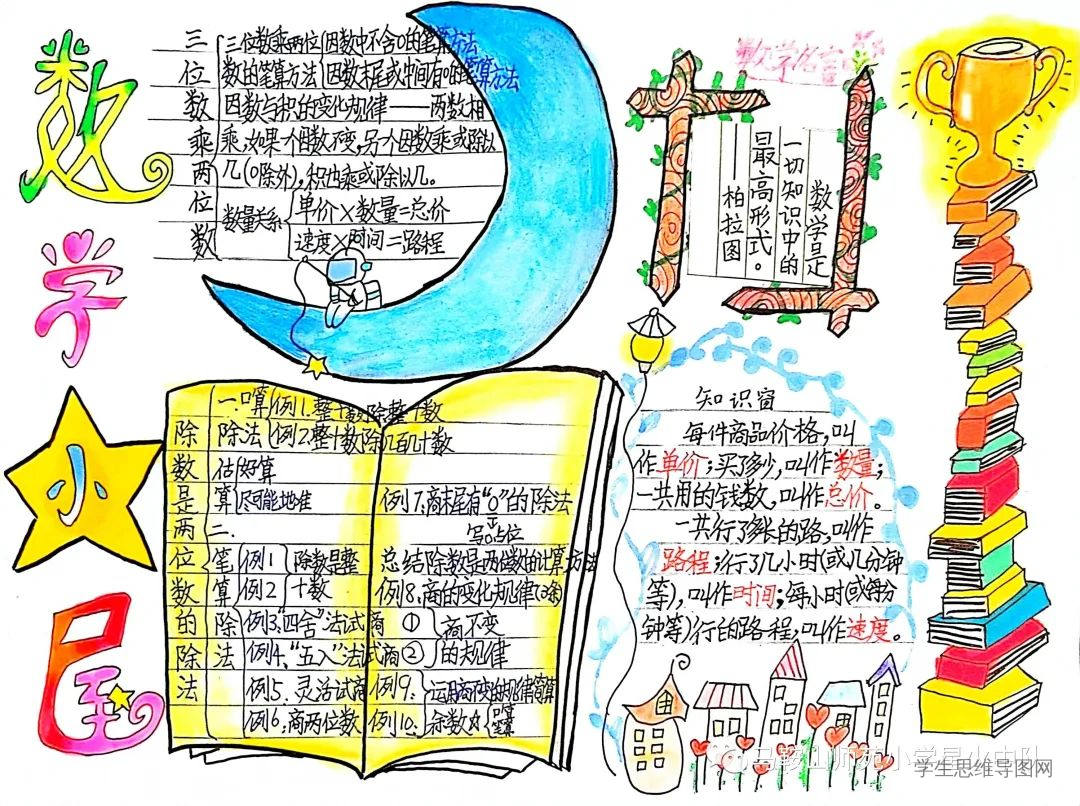 数学小屋
三位数乘两位数
三位数乘两位数的笔算方法
因数中不含0的笔算方法
因数末尾或中间有0的笔算方法
因数与积的变化规律——两数相
乘,如果一个因数不变,另一个因数乘或除以
几(0除外),积也乘或除以几。
数量关系
单价×数量=总价
速度×时间=路程
数学名言
数学是
一切知识中的
最高形式。
——柏拉图
除数是两位数的除法
一.口算除法
例1.整十数除整十数
例2.整十数除几百几十数
估算
好算
尽可能地准
二.笔算除法
例1
例2
除数是整十数
例3.“四舍”法试商
例4.“五入”法试商
例5.灵活试商
例6.商两位数
例7.商末尾有“0”的除法
写0占位
总结除数是两位数的计算方法
例8.商的变化规律
①
②
商不变的规律
例9.
例10.
余数
知识窗
每件商品价格,叫
作单价;买了多少,叫作数量;
一共用的钱数,叫作总价。
一共行了多长的路,叫作
路程;行了几小时(或几分钟
等),叫作时间;每小时(或每分
钟等)行的路程,叫作速度。
马鞍山师苑小学星火中队
学生思维导图网